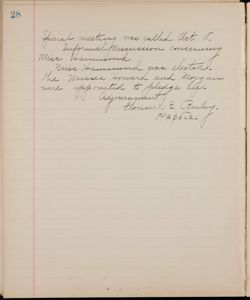 28
Special meeting was called Oct 18.
Informal discussion concerning
Miss Hammond.
Miss Hammond was elected.
The Misses Howard and Morgan
were appointed to pledge her.
Adjournment
Florence E. Bailey